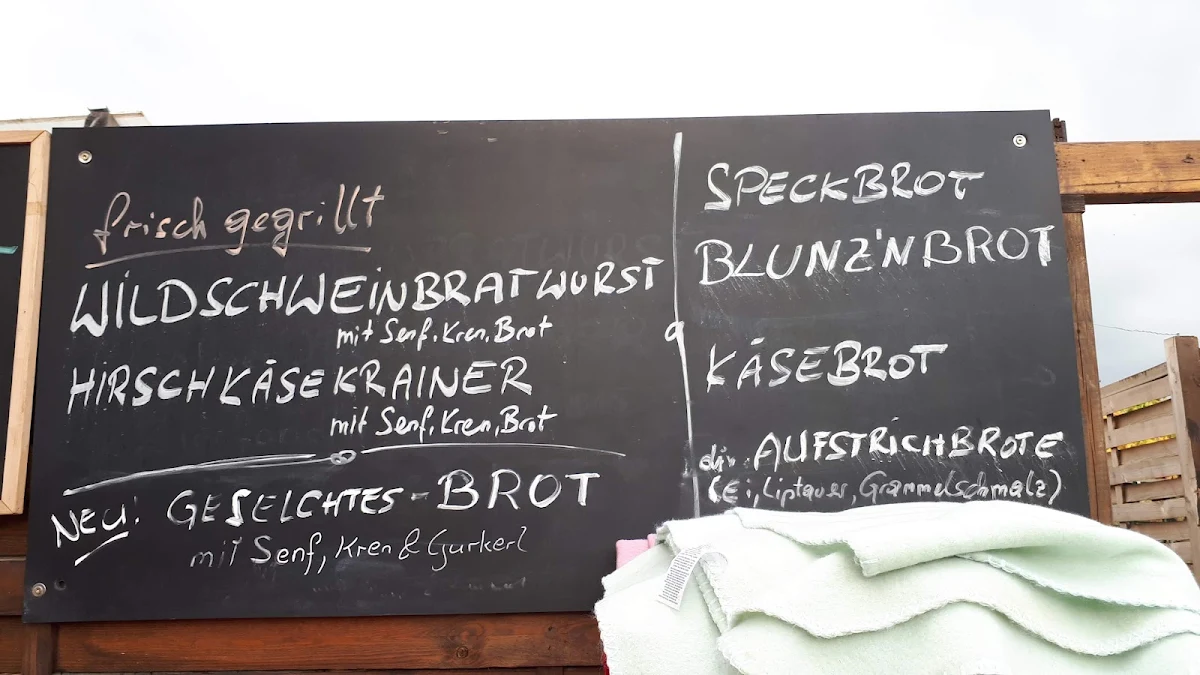 frisch gegrillt
WILDSCHWEINBRATWURST
mit Senf, Kren, Brot
HIRSCHKÄSEKRAINER
mit Senf, Kren, Brot
NEU! GESELCHTES-BROT
mit Senf, Kren & Gurkerl
SPECKBROT
BLUNZ'NBROT
KÄSEBROT
div. AUFSTRICHBROTE
(Ei, Liptauer, Grammelschmalz)